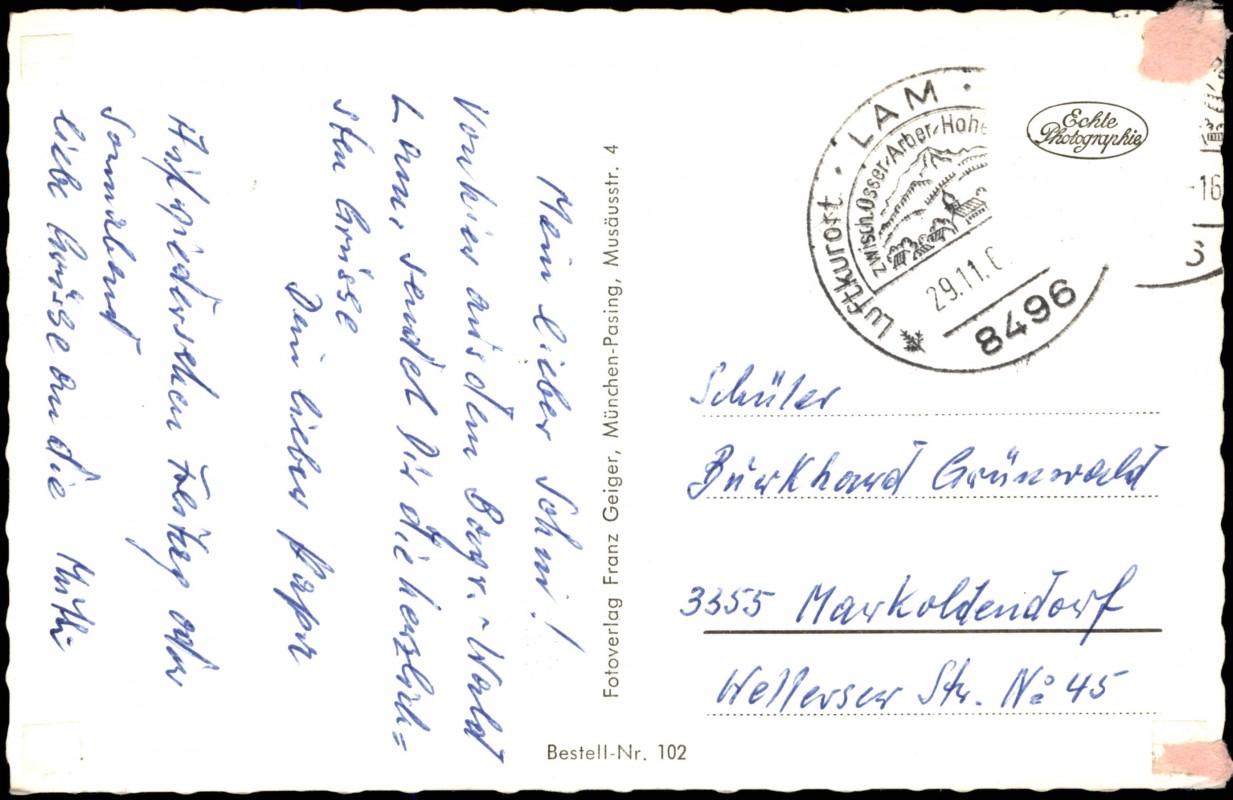 Mein lieber Sohn!
Von hier aus dem Bayr.-Wald
Lam, sendet Dir die herzlich=
sten Grüsse
Dein lieber Papa
Auf Wiedersehen Freitag oder
Sonnabend
liebe Grüsse an die Mutti
Fotoverlag Franz Geiger, München-Pasing, Musäusstr. 4
Bestell-Nr. 102
Echte
Photographie
Luftkurort · LAM ·
zwisch. Osser-Arber-Hohe
29.11.6
8496
-16
Schüler
Burkhard Grünwald
3355 Markoldendorf
Wellerser Str. No 45